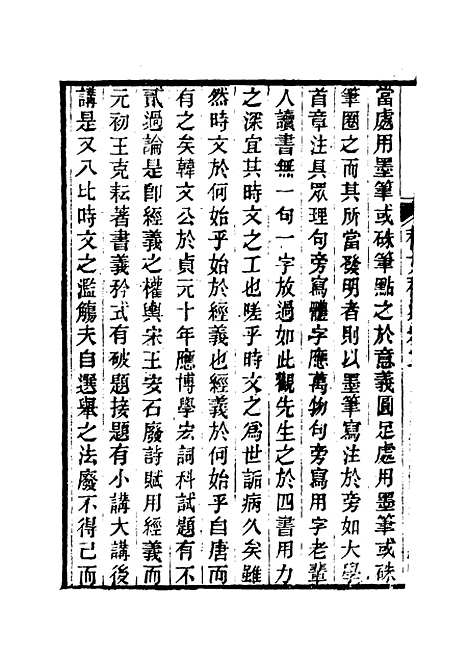 當處用墨筆或硃筆點之於意義圓足處用墨筆或硃
筆圈之而其所當發明者則以墨筆寫注於旁如大學
首章注具眾理句旁寫體字應萬物句旁寫用字老輩
人讀書無一句一字放過如此觀先生之於四書用力
之深宜其時文之工也嗟乎時文之為世詬病久矣雖
然時文於何始乎始於經義也經義於何始乎自唐而
有之矣韓文公於貞元十年應博學宏詞科試題有不
貳過論是卽經義之權輿宋王安石廢詩賦用經義而
元初王克耘著書義矜式有破題接題有小講大講後
講是又八比時文之濫觴夫自選舉之法廢不得已而